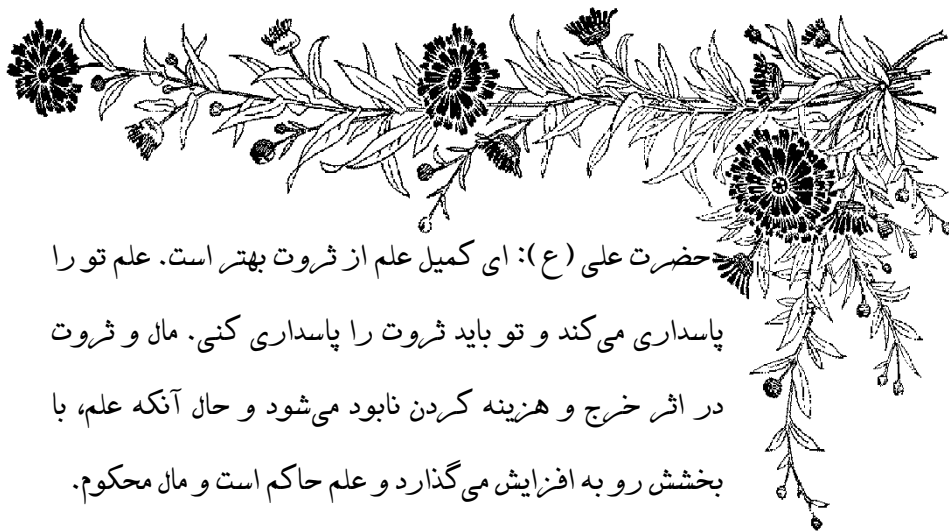 حضرت علی (ع): ای کمیل علم از ثروت بهتر است. علم تو را
پاسداری می‌کند و تو باید ثروت را پاسداری کنی. مال و ثروت
در اثر خرج و هزینه کردن نابود می‌شود و حال آنکه علم، با
بخشش رو به افزایش می‌گذارد و علم حاکم است و مال محکوم.